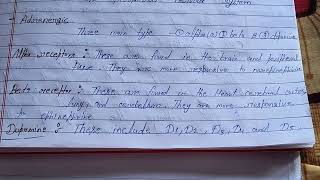 system
- Adrenergic
Three main type - ① alpha (α) ② beta & ③ dopamine
Alfa receptors : These are found in the brain and peripheral
tissue. They are more responsive to norepinephrine
Beta receptor : These are found in the Heart cerebral cortex
lung, and cerebellum. They are more responsive
to ephinephrine
Dopamine : These include D1, D2, D3, D4 and D5